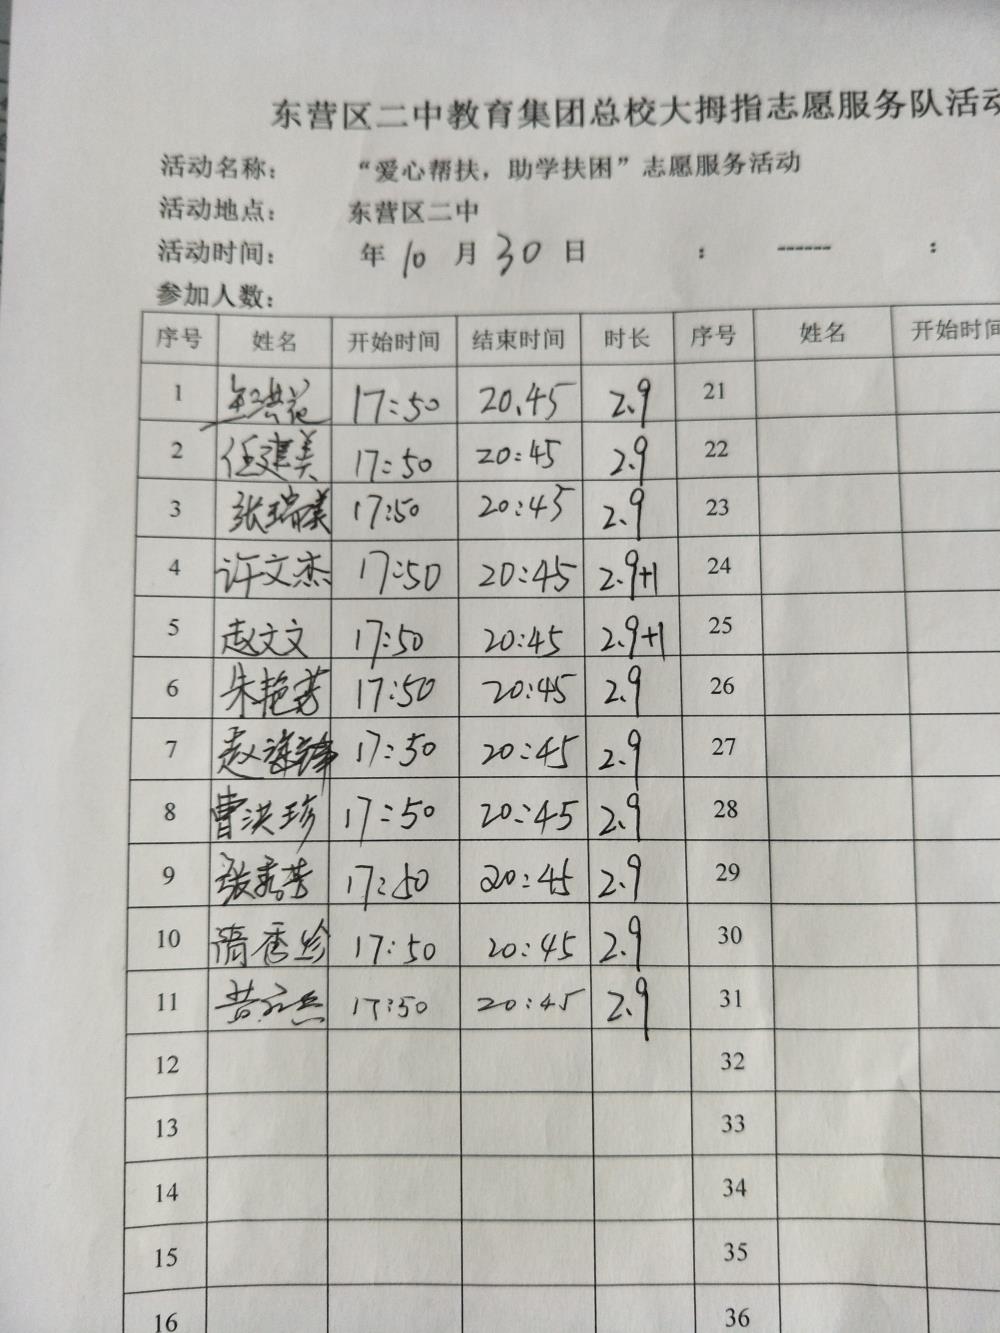 东营区二中教育集团总校大拇指志愿服务队活动
活动名称： “爱心帮扶，助学扶困”志愿服务活动
活动地点： 东营区二中
活动时间： 年 10 月 30 日 : ------ :
参加人数：
序号 姓名 开始时间 结束时间 时长 序号 姓名 开始时间
1 17:50 20.45 2.9 21
2 任建美 17:50 20:45 2.9 22
3 张瑞美 17:50 20:45 2.9 23
4 许文杰 17:50 20:45 2.9+1 24
5 赵文文 17:50 20:45 2.9+1 25
6 朱艳芳 17:50 20:45 2.9 26
7 赵 17:50 20:45 2.9 27
8 曹洪珍 17:50 20:45 2.9 28
9 张秀芳 17:50 20:45 2.9 29
10 隋香珍 17:50 20:45 2.9 30
11 17:50 20:45 2.9 31
12 32
13 33
14 34
15 35
16 36